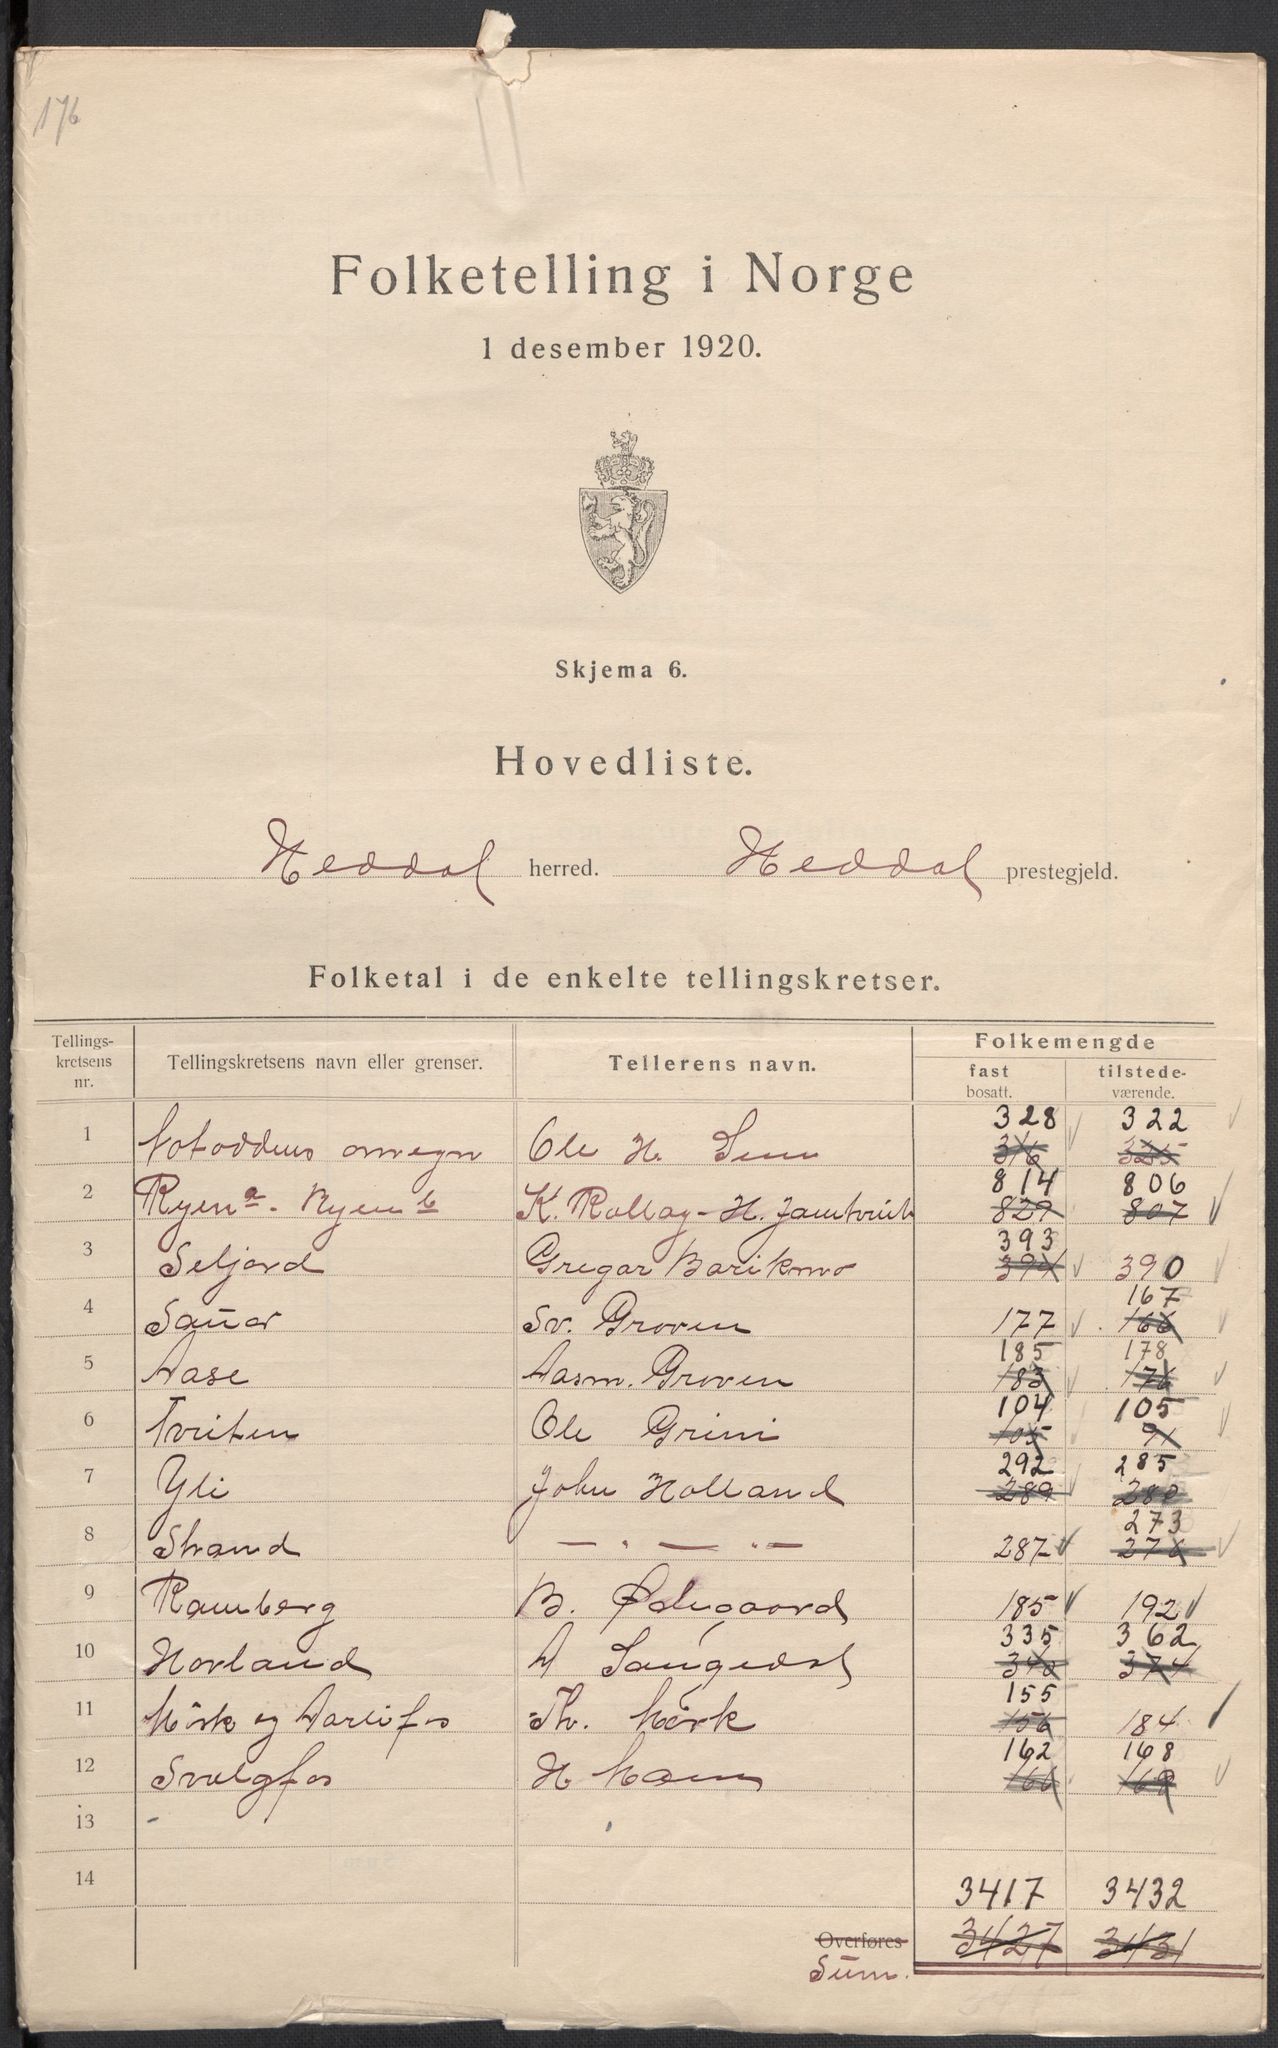 176
Folketelling i Norge
1 desember 1920.
Skjema 6.
Hovedliste.
Heddal herred. Heddal prestegjeld.
Folketal i de enkelte tellingskretser.
Tellingskretsens nr. Tellingskretsens navn eller grenser. Tellerens navn. Folkemengde
fast bosatt. tilstedeværende.
328 322
1 Notoddens omegn Ole H. Sem 316 325
814 806
2 Ryen a - Ryen b K. Rollag - H. Jamtveit 829 807
393
3 Seljord Gregar Barikmo 394 390
167
4 Sauar Sv. Groven 177 166
185 178
5 Aase Aasm. Groven 183 176
104 105
6 Tveiten Ole Grini 105 91
292 285
7 Yli John Holland 289 280
273
8 Strand — . — . — 287 276
9 Ramberg B. Ødegaard 185 192
335 362
10 Hovland 340 374
155
11 Mörk og Aarlifos Th. Mörk 156 184
162 168
12 Svælgfos H 166 169
13
14
3417 3432
Overføres 3427 3431
Sum.